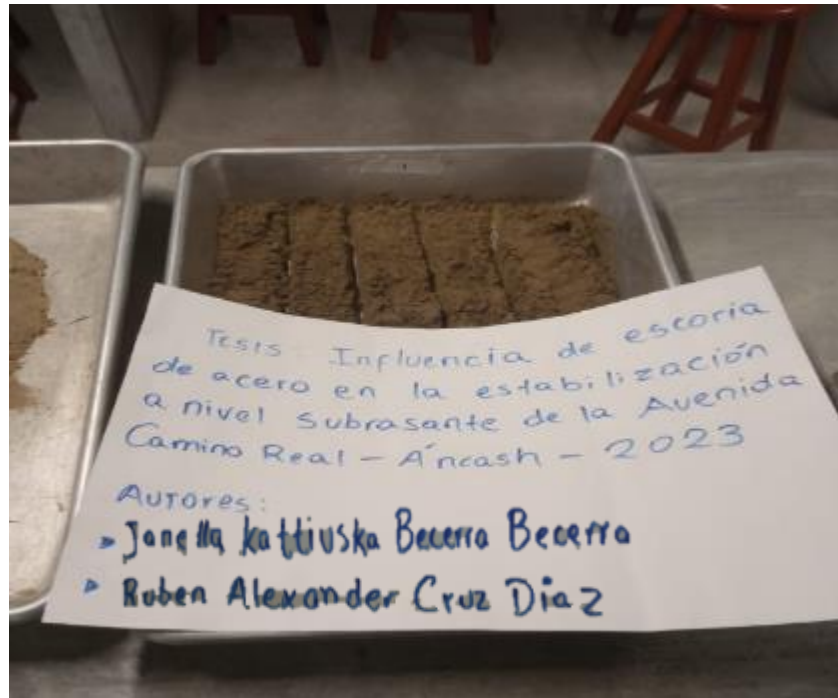 Tesis Influencia de escoria
de acero en la estabilización
a nivel subrasante de la Avenida
Camino Real - Áncash - 2023
Autores:
Janella Kattiuska Becerra Becerra
Ruben Alexander Cruz Diaz